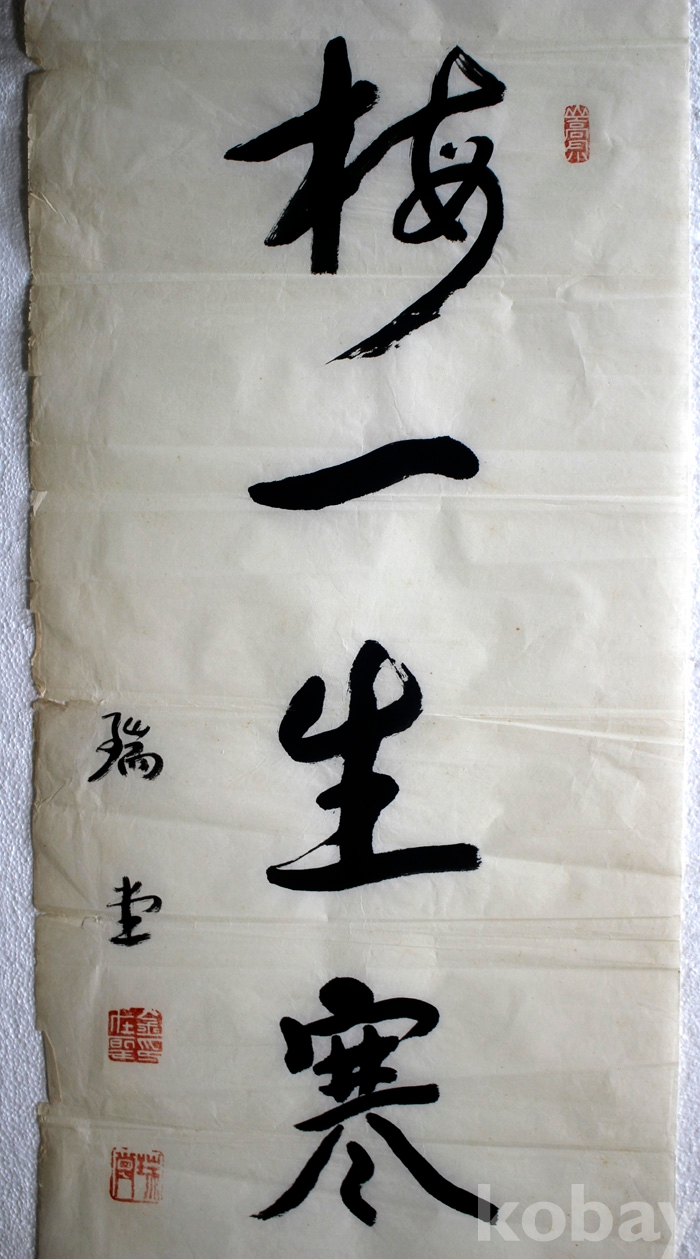 梅一生寒
瑞堂
kobay